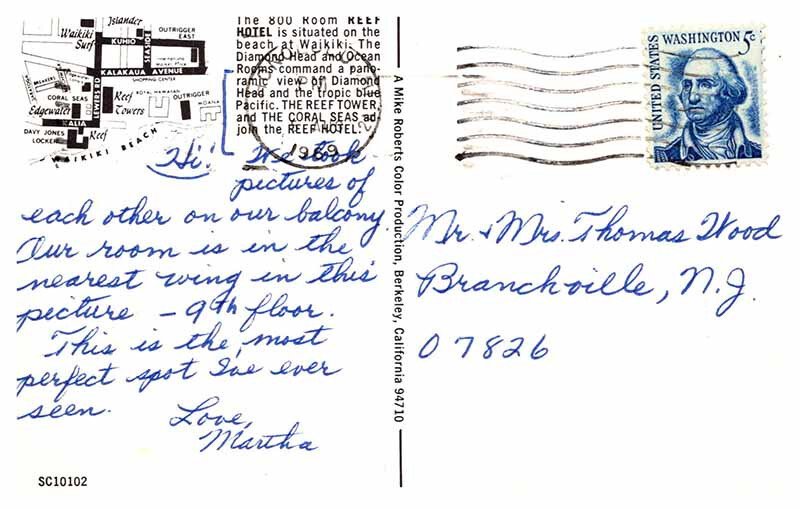 Islander
Waikiki
Surf
OUTRIGGER
EAST
KUHIO
SEASIDE
KALAKAUA AVENUE
SHOPPING CENTER
BREAKERS
LEWERS RD
CORAL SEAS
Reef
Towers
ROYAL HAWAIIAN
OUTRIGGER
MOANA
Edgewater
KALIA
DAVY JONES
LOCKER
Reef
WAIKIKI BEACH
The 800 Room REEF
HOTEL is situated on the
beach at Waikiki. The
Diamond Head and Ocean
Rooms command a pano-
ramic view of Diamond
Head and the tropic blue
Pacific. THE REEF TOWER,
and THE CORAL SEAS ad-
join the REEF HOTEL.
1969
Hi! We took
pictures of
each other on our balcony.
Our room is in the
nearest wing in this
picture – 9th floor.
This is the most
perfect spot I've ever
seen.
Love,
Martha
SC10102
A Mike Roberts Color Production, Berkeley, California 94710
UNITED STATES
WASHINGTON 5c
Mr. & Mrs. Thomas Wood
Branchville, N.J.
07826